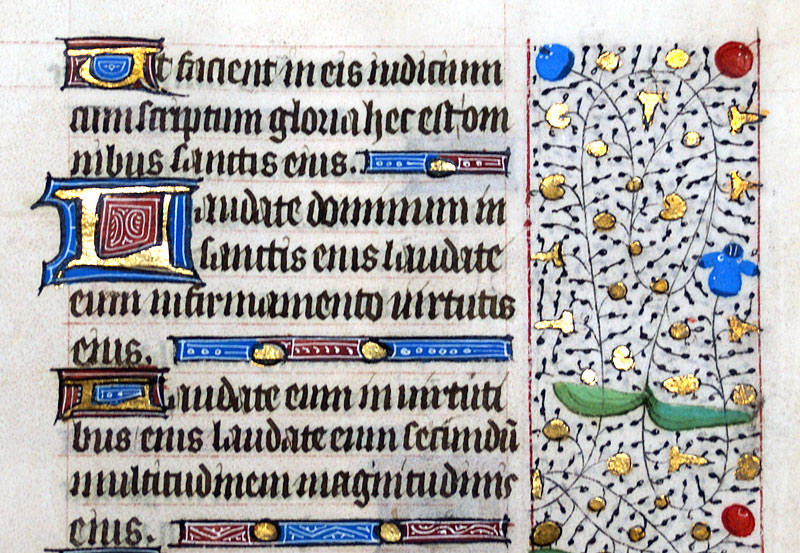 Ut facient in eis iudicium
cum scriptum gloria hec est om
nibus sanctis eius.
Laudate dominum in
sanctis eius laudate
eum in firmamento uirtutis
eius.
Laudate eum in uirtuti
bus eius laudate eum secundū
multitudinem magnitudinis
eius.